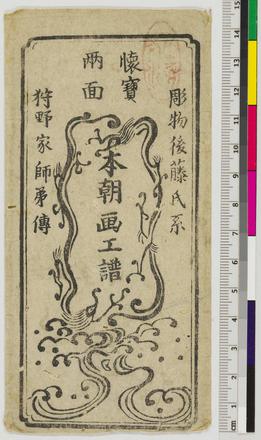 懐寶
両面
彫物後藤氏系
本朝画工譜
狩野家師弟傳